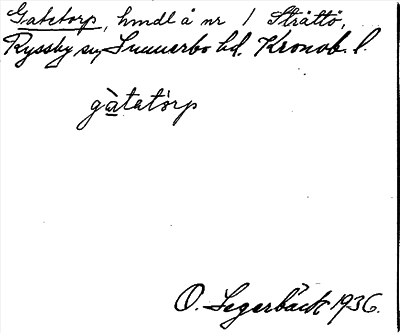 Gatetorp, hmdl å nr 1 Stråttö,
Ryssby sn, Sunnerbo hd. Kronob. l.
gàtatòrp
O. Segerbäck 1936.